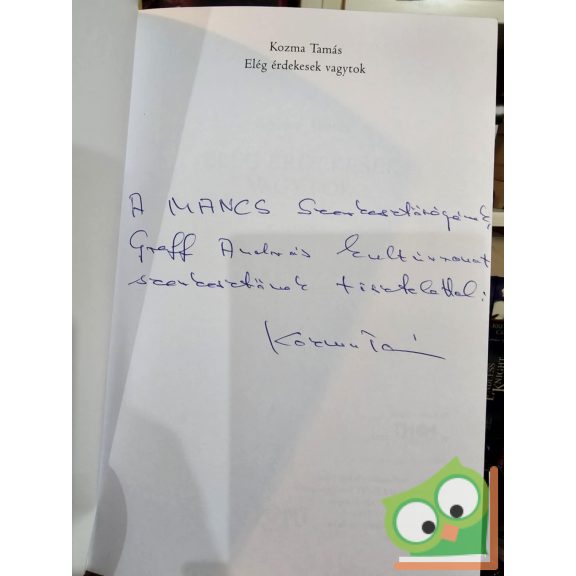 Kozma Tamás
Elég érdekesek vagytok
A MANCS Szerkesztőségének,
Greff András kultúrrovat
szerkesztőnek tisztelettel:
Kozma Tamás
KNIGHT